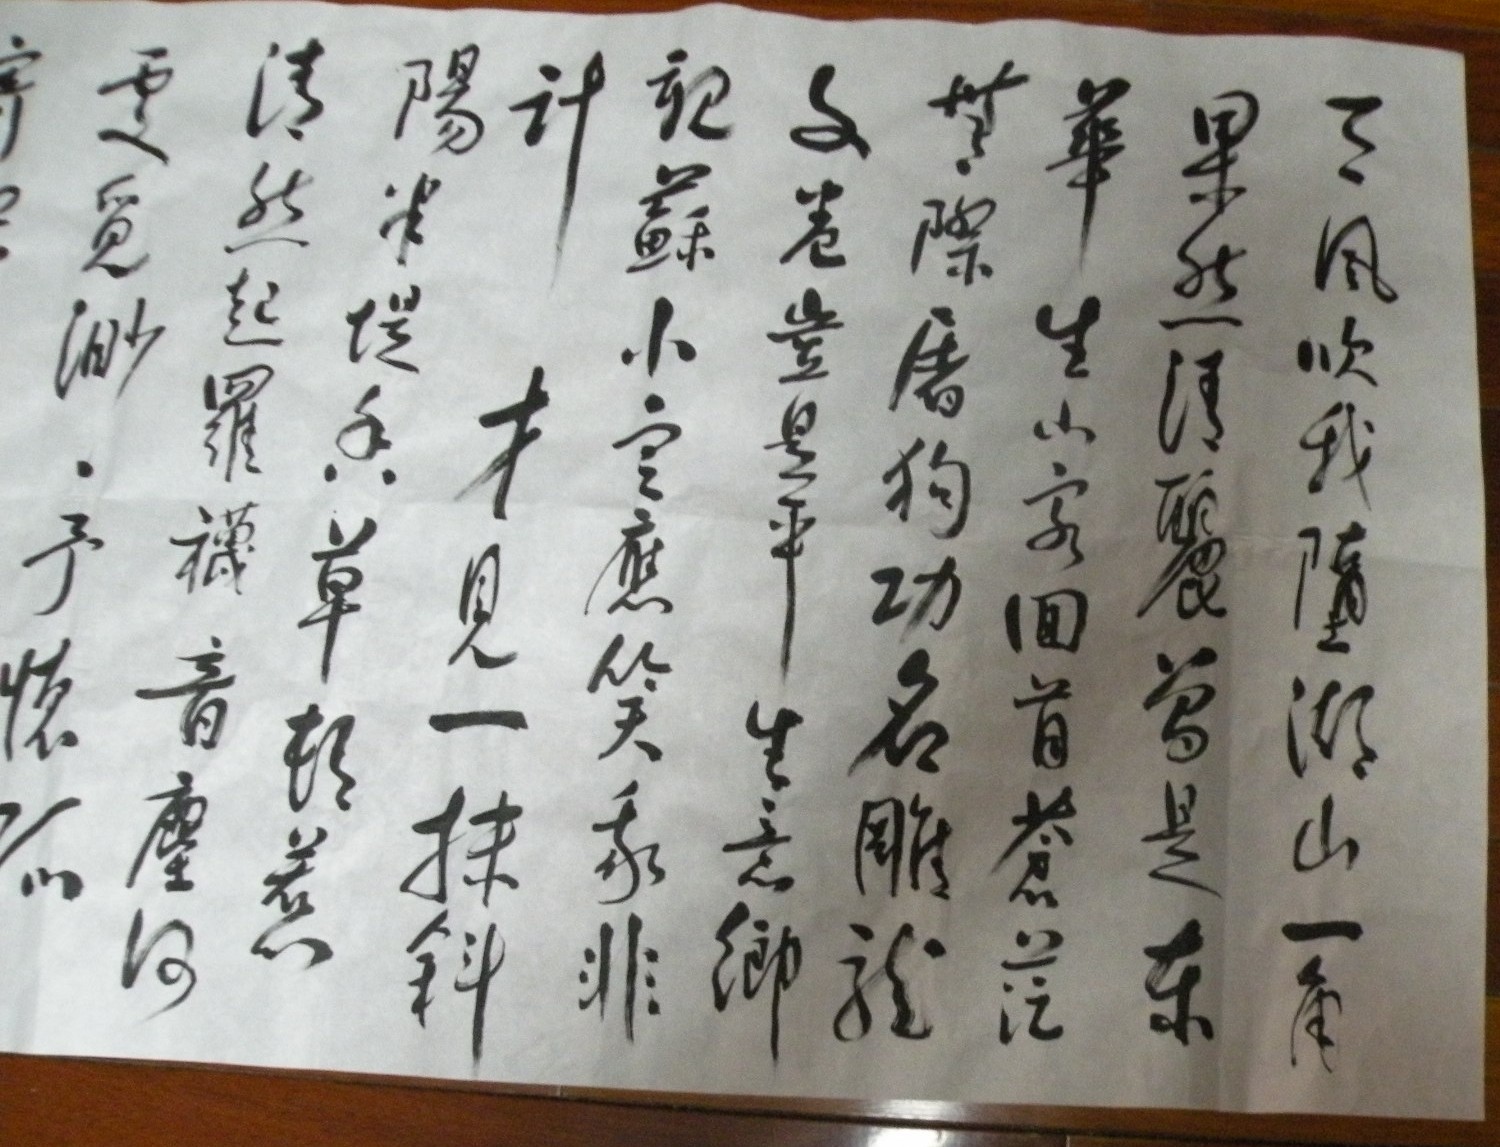 天風吹我墮湖山一角
果然清麗曾是東
華生小客回首蒼茫
無際屠狗功名雕龍
文卷豈是平生意鄉
親蘇小定應笑我非
計 才見一抹斜
陽半堤香草頓惹
清然起羅襪音塵何
處覓渺〻予懷孤